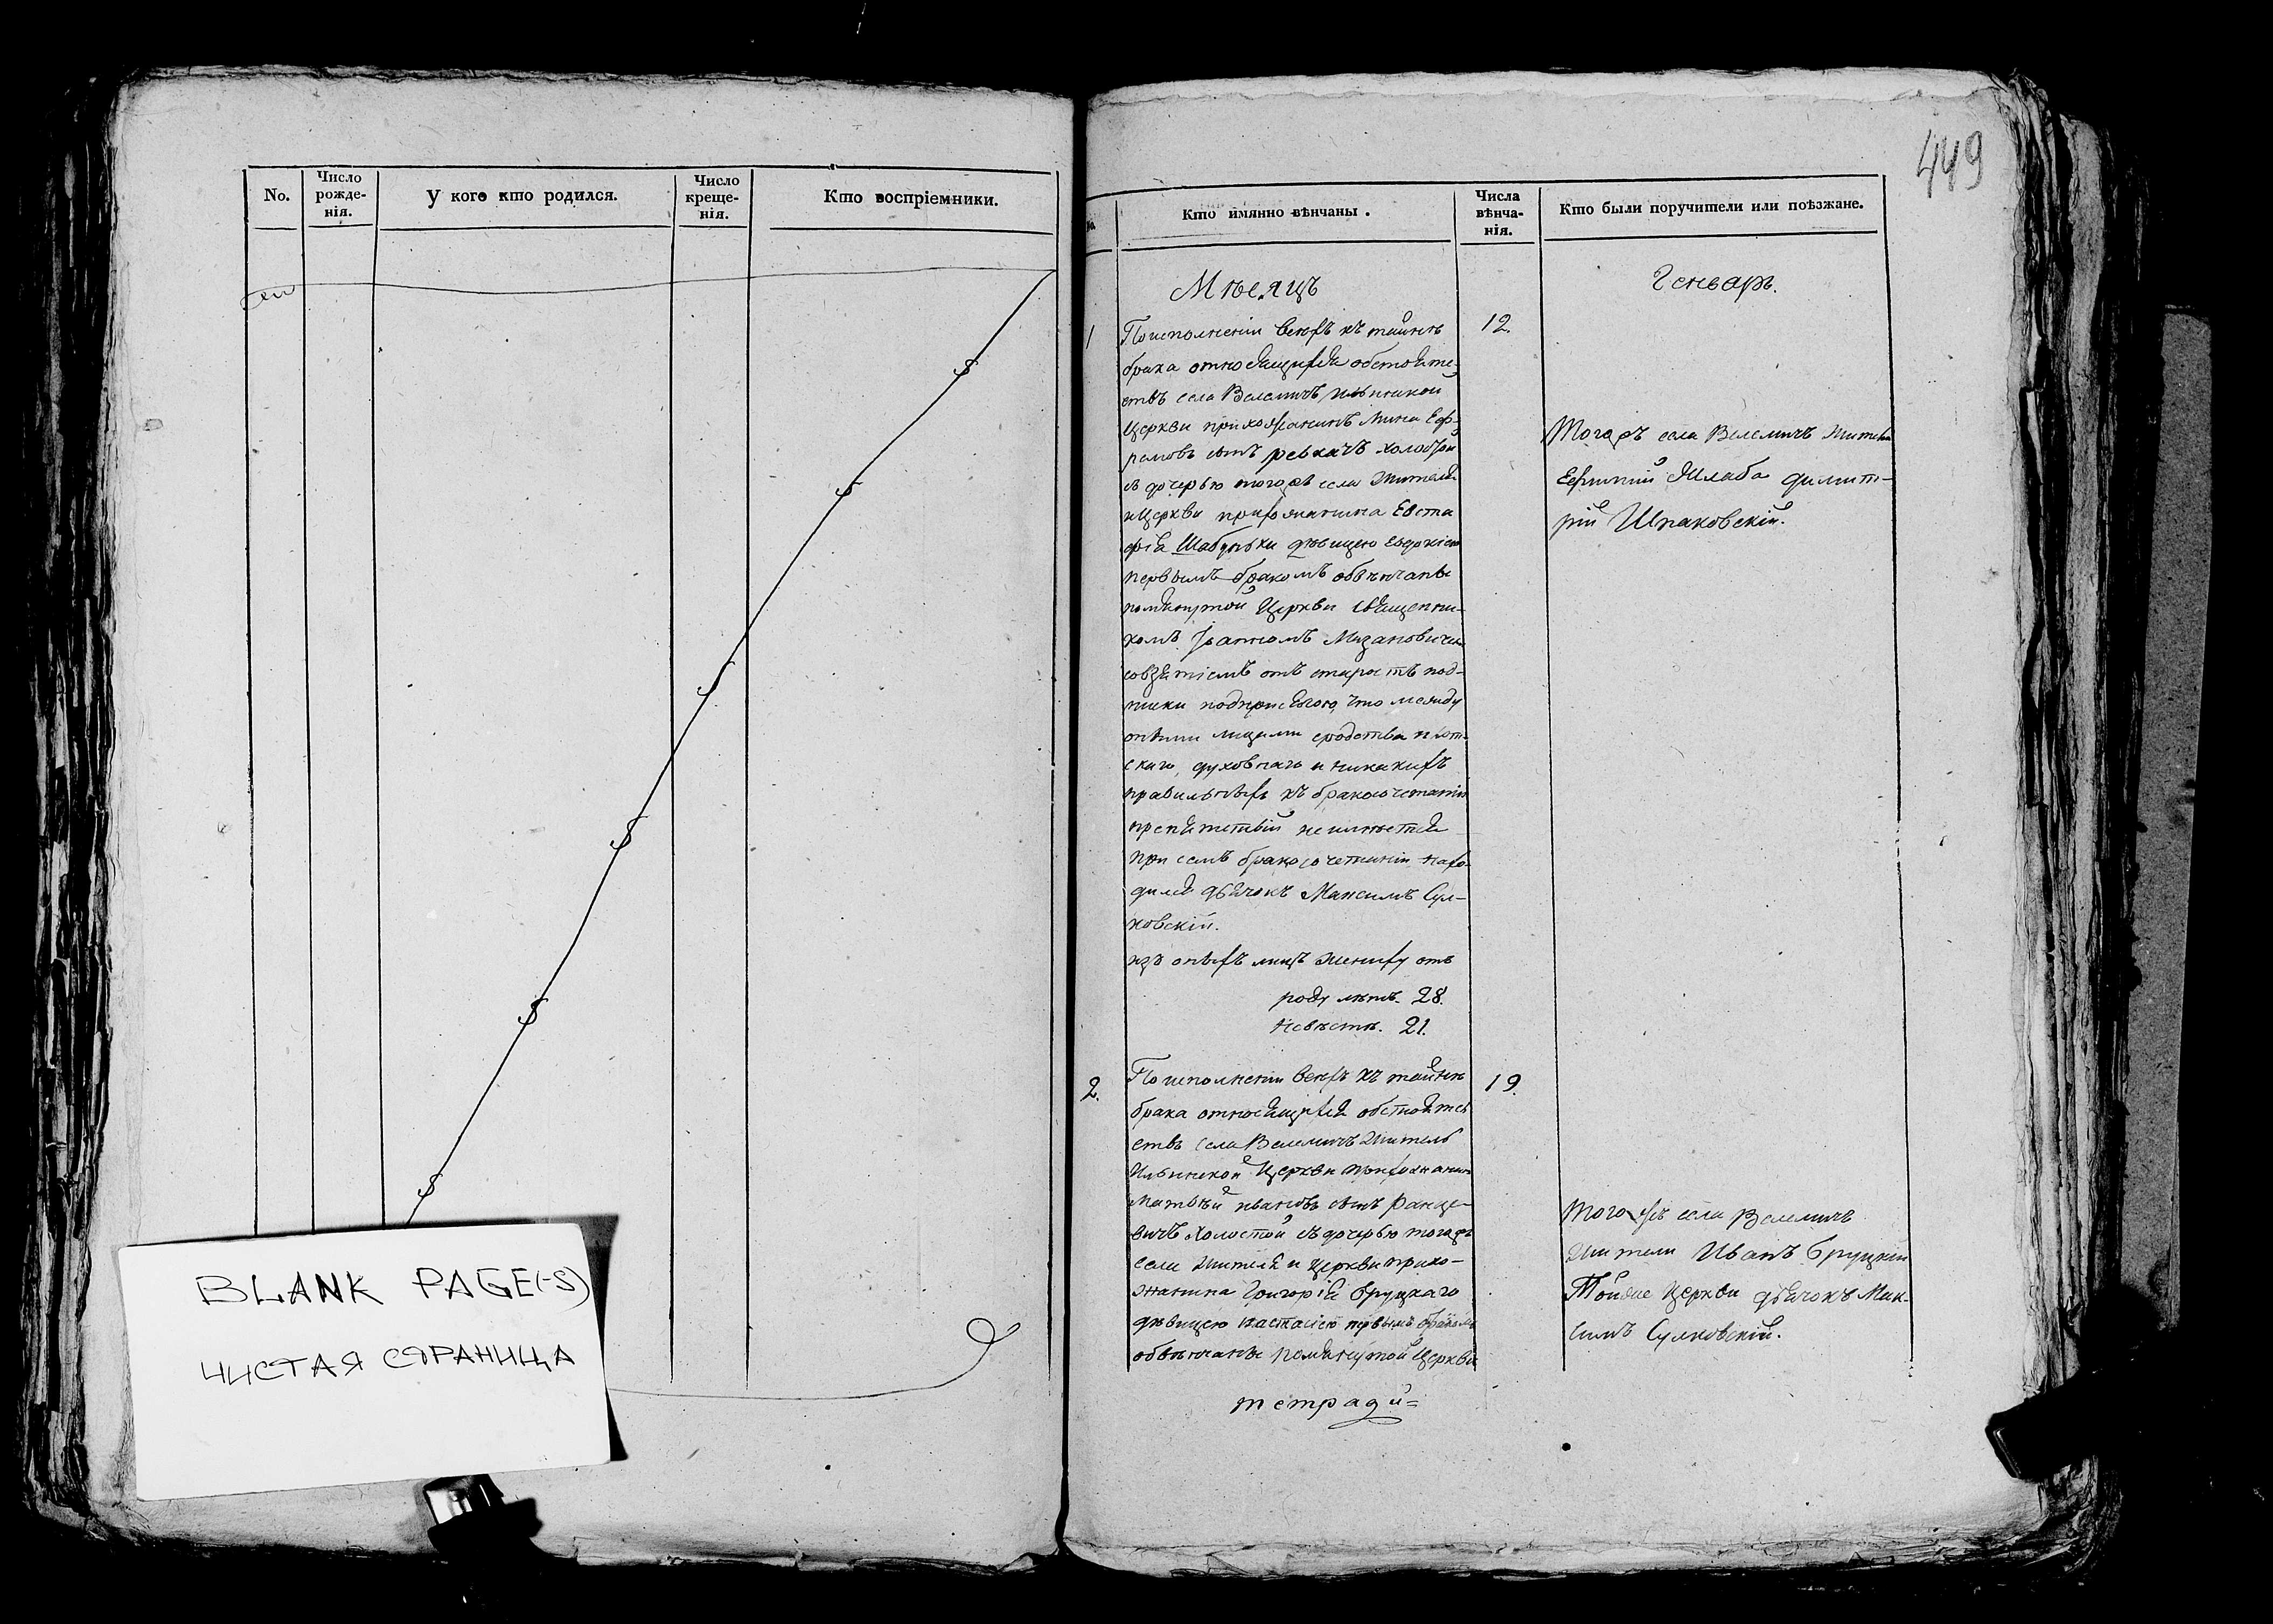 449
No.
Число рожде-нія.
У кого кто родился.
Число креще-нія.
Кто воспріемники.
Кто имянно вѣнчаны.
Числа вѣнча-нія.
Кто были поручители или поѣзжане.
Мѣсяцъ
Генварь.
1
12.
По исполненіи всѣхъ къ тайнѣ
брака относящихся обстояте-
ствъ села Велемичъ Ильинской
Церкви прихожанинъ Мина Еф-
ремовъ сынъ ревкачъ холостой
съ дочерью тогожъ села жителя
и Церкви прихожанина Евста
фія Шабуньки дѣвицею Евдокіею
первымъ бракомъ обвѣнчаны
помянутой Церкви священни-
комъ Іоанномъ
совзятіемъ отъ старостъ под-
писки подприсягою, что между
оными лицами сродства плот-
скаго, духовнаго и никакихъ
правильныхъ къ бракосочетанію
препятствій неимѣется
при семъ бракосочетаніи нахо-
дился дьячокъ Максимъ Сул-
ковскій.
изъ оныхъ лицъ жениху отъ
роду лѣтъ. 28.
невѣстѣ. 21.
Тогожъ села Велемичъ жители
Ефимій Шлаба димит-
рій Шпаковскій.
2.
19.
По исполненіи всѣхъ къ тайнѣ
брака относящихся обстоятел
ствъ села Велемичъ житель
Ильинской Церкви прихожанинъ
Матвѣй ивановъ сынъ Ранце-
вичъ холостой съ дочерью тогожъ
села жителя и церкви прихо-
жанина Григорія Бруцкаго
дѣвицею настасіею первымъ бракомъ
обвѣнчаны помянутой Церкви
Тогожъ села Велемичъ
жители Иванъ Бруцкій
Тойже Церкви дьячокъ Мак-
симъ Сулковскій.
тетради=
BLANK PAGE(-S)
ЧИСТАЯ СТРАНИЦА